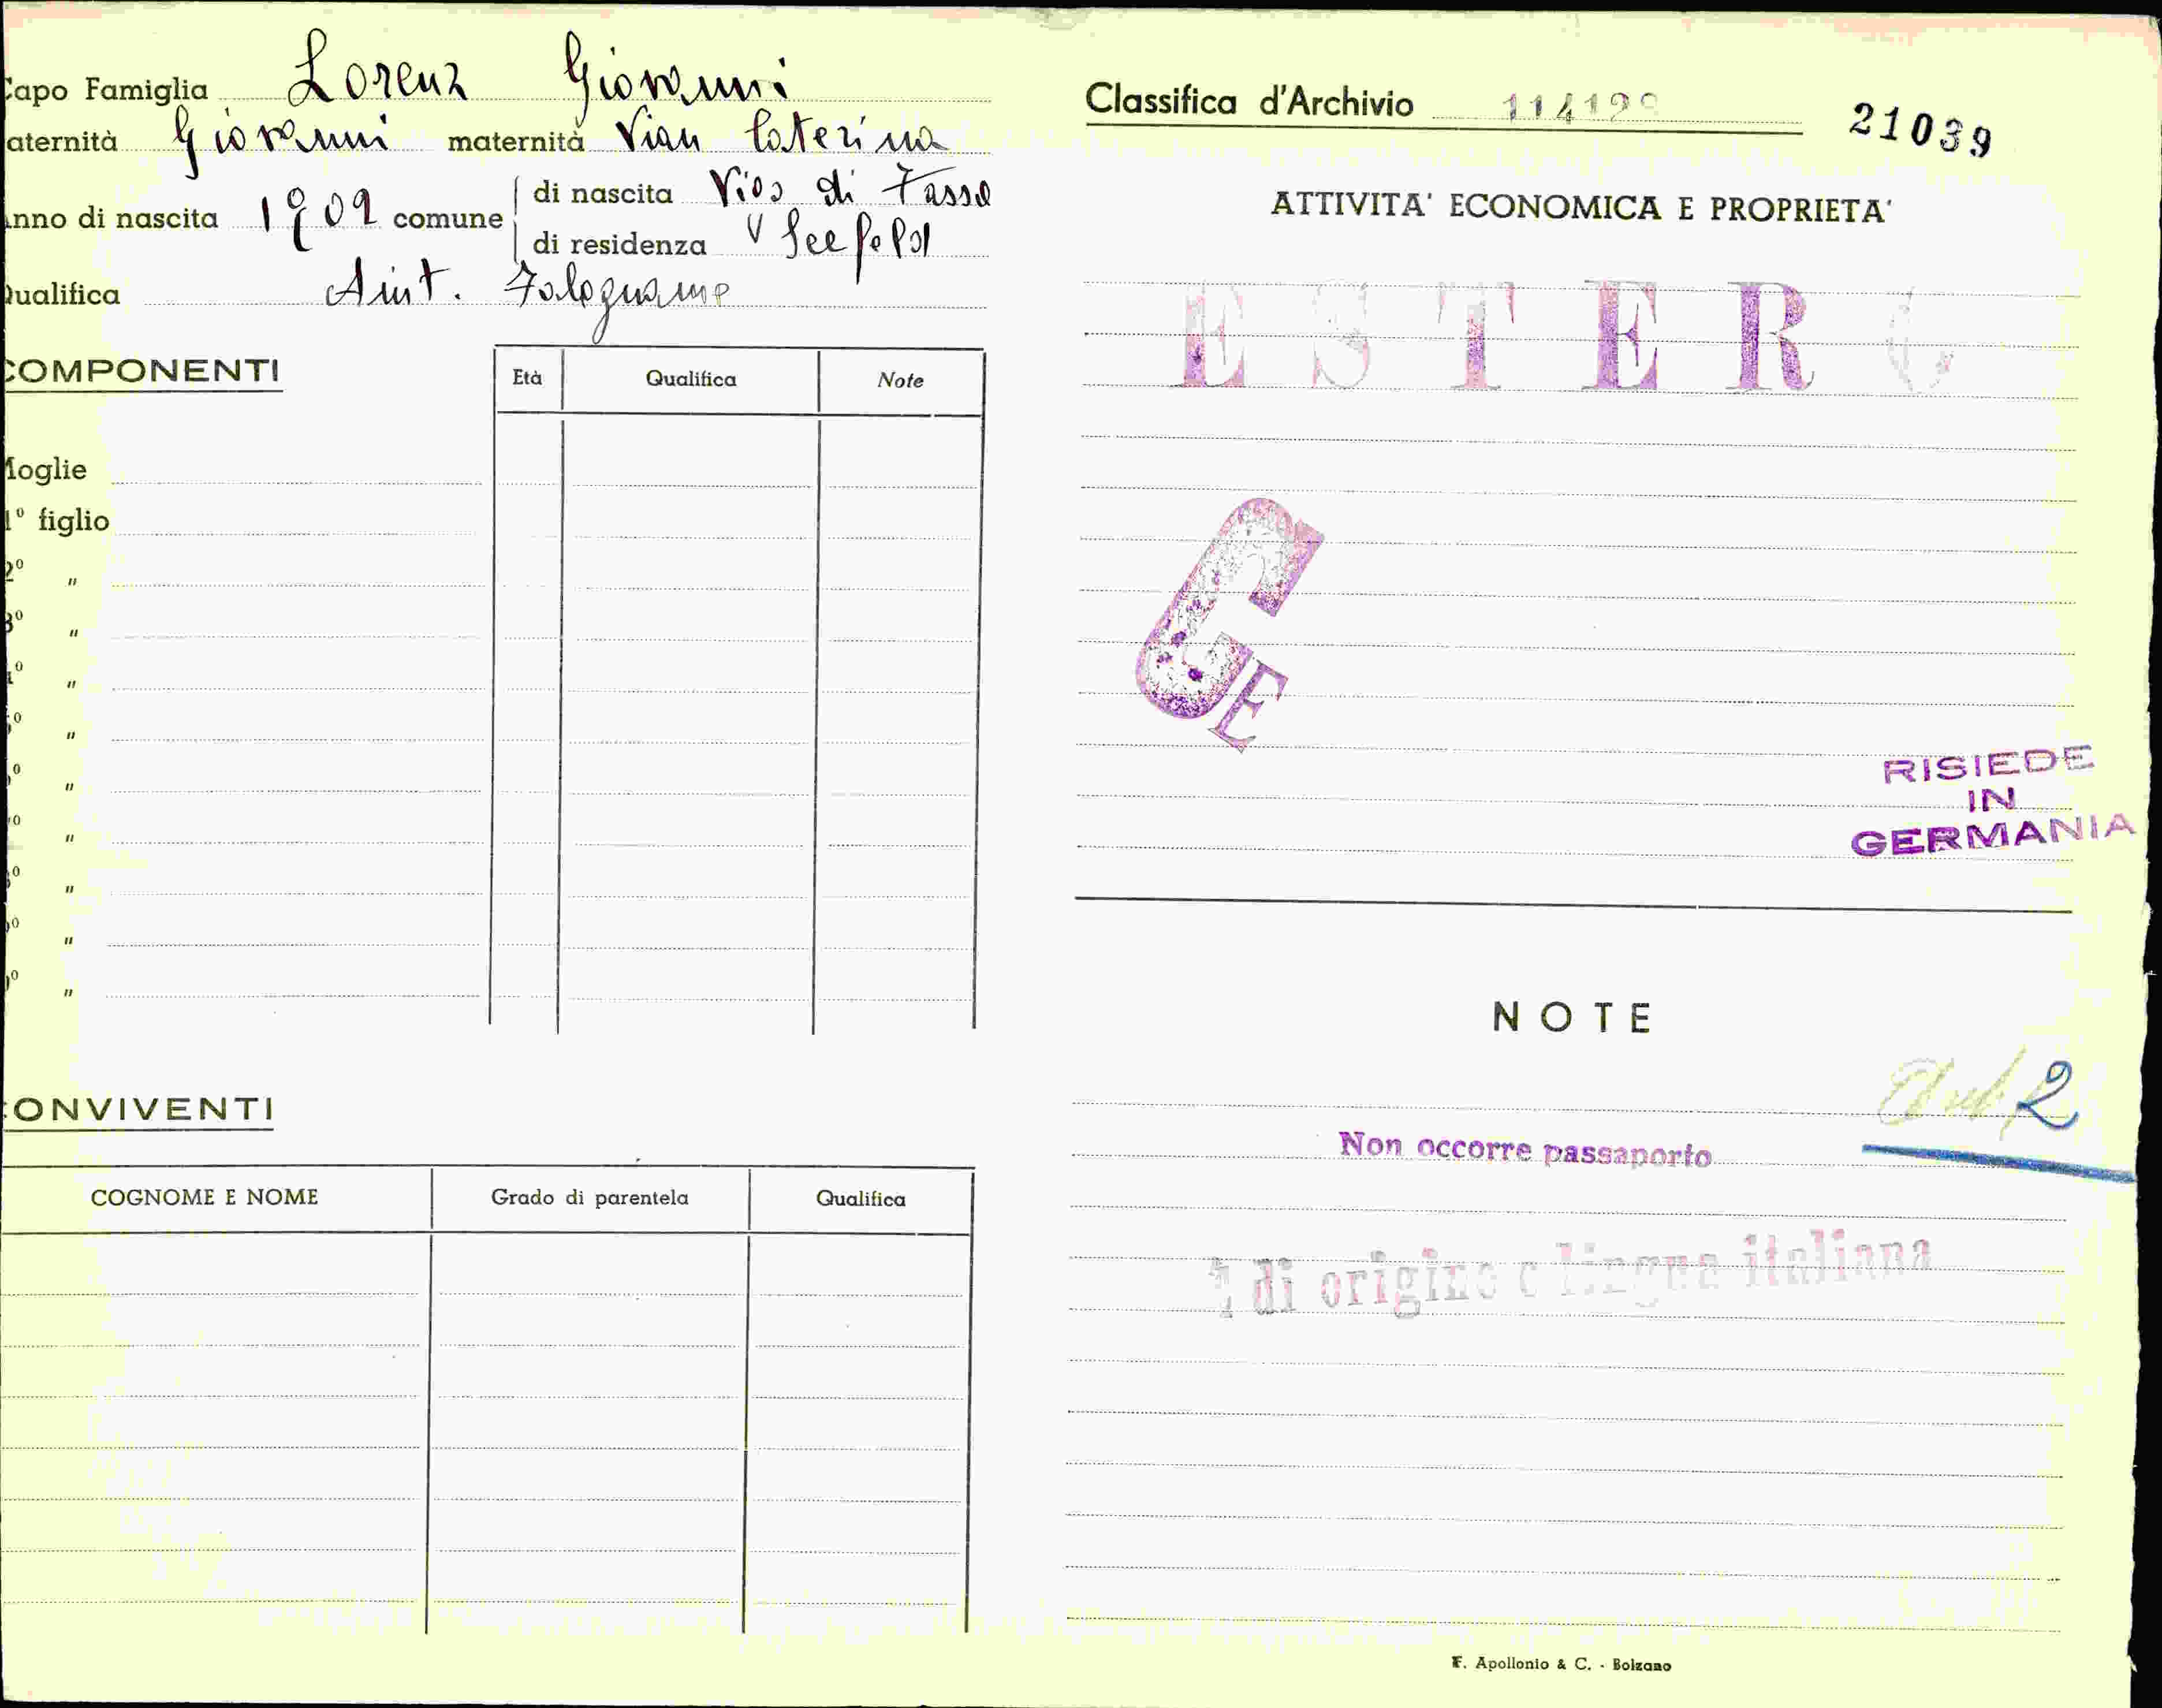 Capo Famiglia Lorenz Giovanni
aternità Giovanni maternità Vian Caterina
nno di nascita 1902 comune di nascita Vigo di Fassa
di residenza V Seefeld
Qualifica Aiut. Falegname
COMPONENTI
Età Qualifica Note
Moglie
1º figlio
2º "
3º "
º "
º "
º "
º "
º "
º "
º "
CONVIVENTI
COGNOME E NOME Grado di parentela Qualifica
Classifica d'Archivio 21039
ATTIVITA' ECONOMICA E PROPRIETA'
ESTERO
GE
RISIEDE
IN
GERMANIA
NOTE
2
Non occorre passaporto
di origine e lingua italiana
F. Apollonio & C. - Bolzano